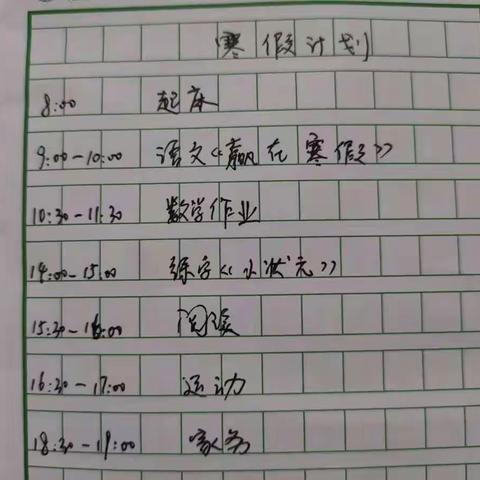 寒假计划
8:00 起床
9:00-10:00 语文《赢在寒假》
10:30-11:30 数学作业
14:00-15:00 练字《小状元》
15:30-16:00 阅读
16:30-17:00 运动
18:30-19:00 家务